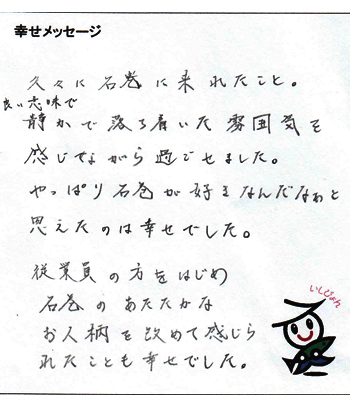 幸せメッセージ
久々に石巻に来れたこと。
良い意味で
静かで落ち着いた雰囲気を
感じながら過ごせました。
やっぱり石巻が好きなんだなぁと
思えたのは幸せでした。
従業員の方をはじめ
石巻のあたたかな
お人柄を改めて感じら
れたことも幸せでした。
いしぴょん